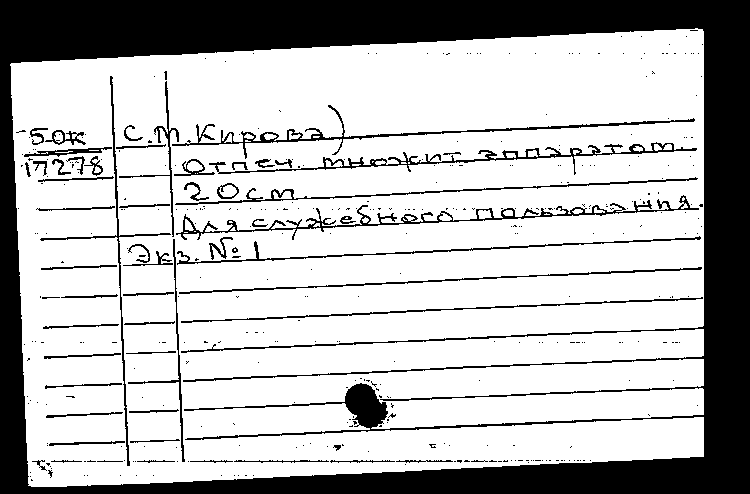 50к С.М.Кирова)
17278 Отпеч. множит. аппаратом.
20см.
Для служебного пользования.
Экз. № 1